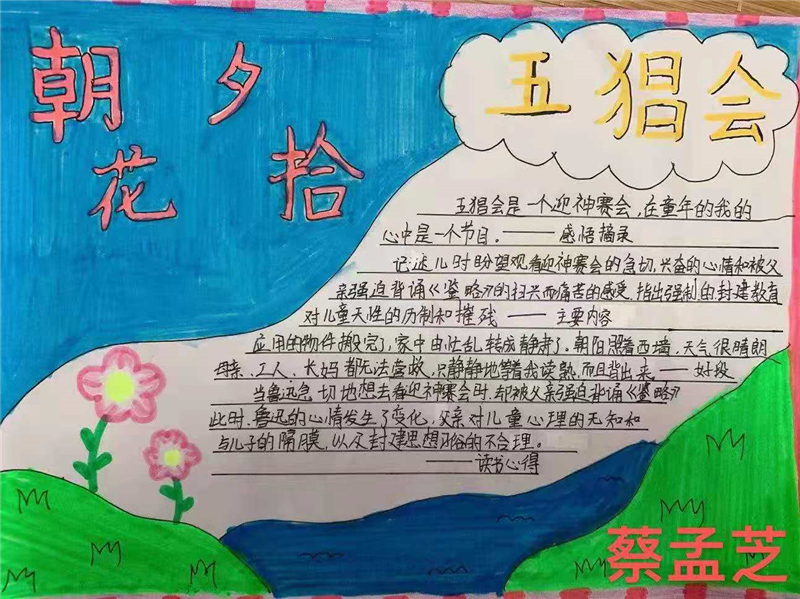 朝夕
花拾
五猖会
五猖会是一个迎神赛会,在童年的我的
心中是一个节日。——感悟摘录
记述儿时盼望观看迎神赛会的急切,兴奋的心情和被父
亲强迫背诵《鉴略》的扫兴而痛苦的感受,指出强制的封建教育
对儿童天性的压制和摧残——主要内容
应用的物件搬完了,家中由忙乱转成静肃了。朝阳照着西墙,天气很晴朗
母亲、工人、长妈都无法营救,只静静地等着我读熟,而且背出来——好段
当鲁迅急切地想去看迎神赛会时,却被父亲强迫背诵《鉴略》
此时,鲁迅的心情发生了变化,父亲对儿童心理的无知和
与儿子的隔膜,以及封建思想习俗的不合理。
——读书心得
蔡孟芝